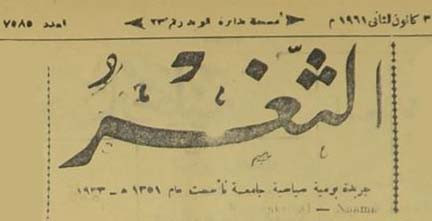 ٣ كانون الثاني ١٩٦١ م بدائرة البريد رقم ٢٣ العدد ٧٥٨٥
الثغر
جريدة يومية سياسية جامعة تأسست عام ١٣٥١ هـ - ١٩٣٣